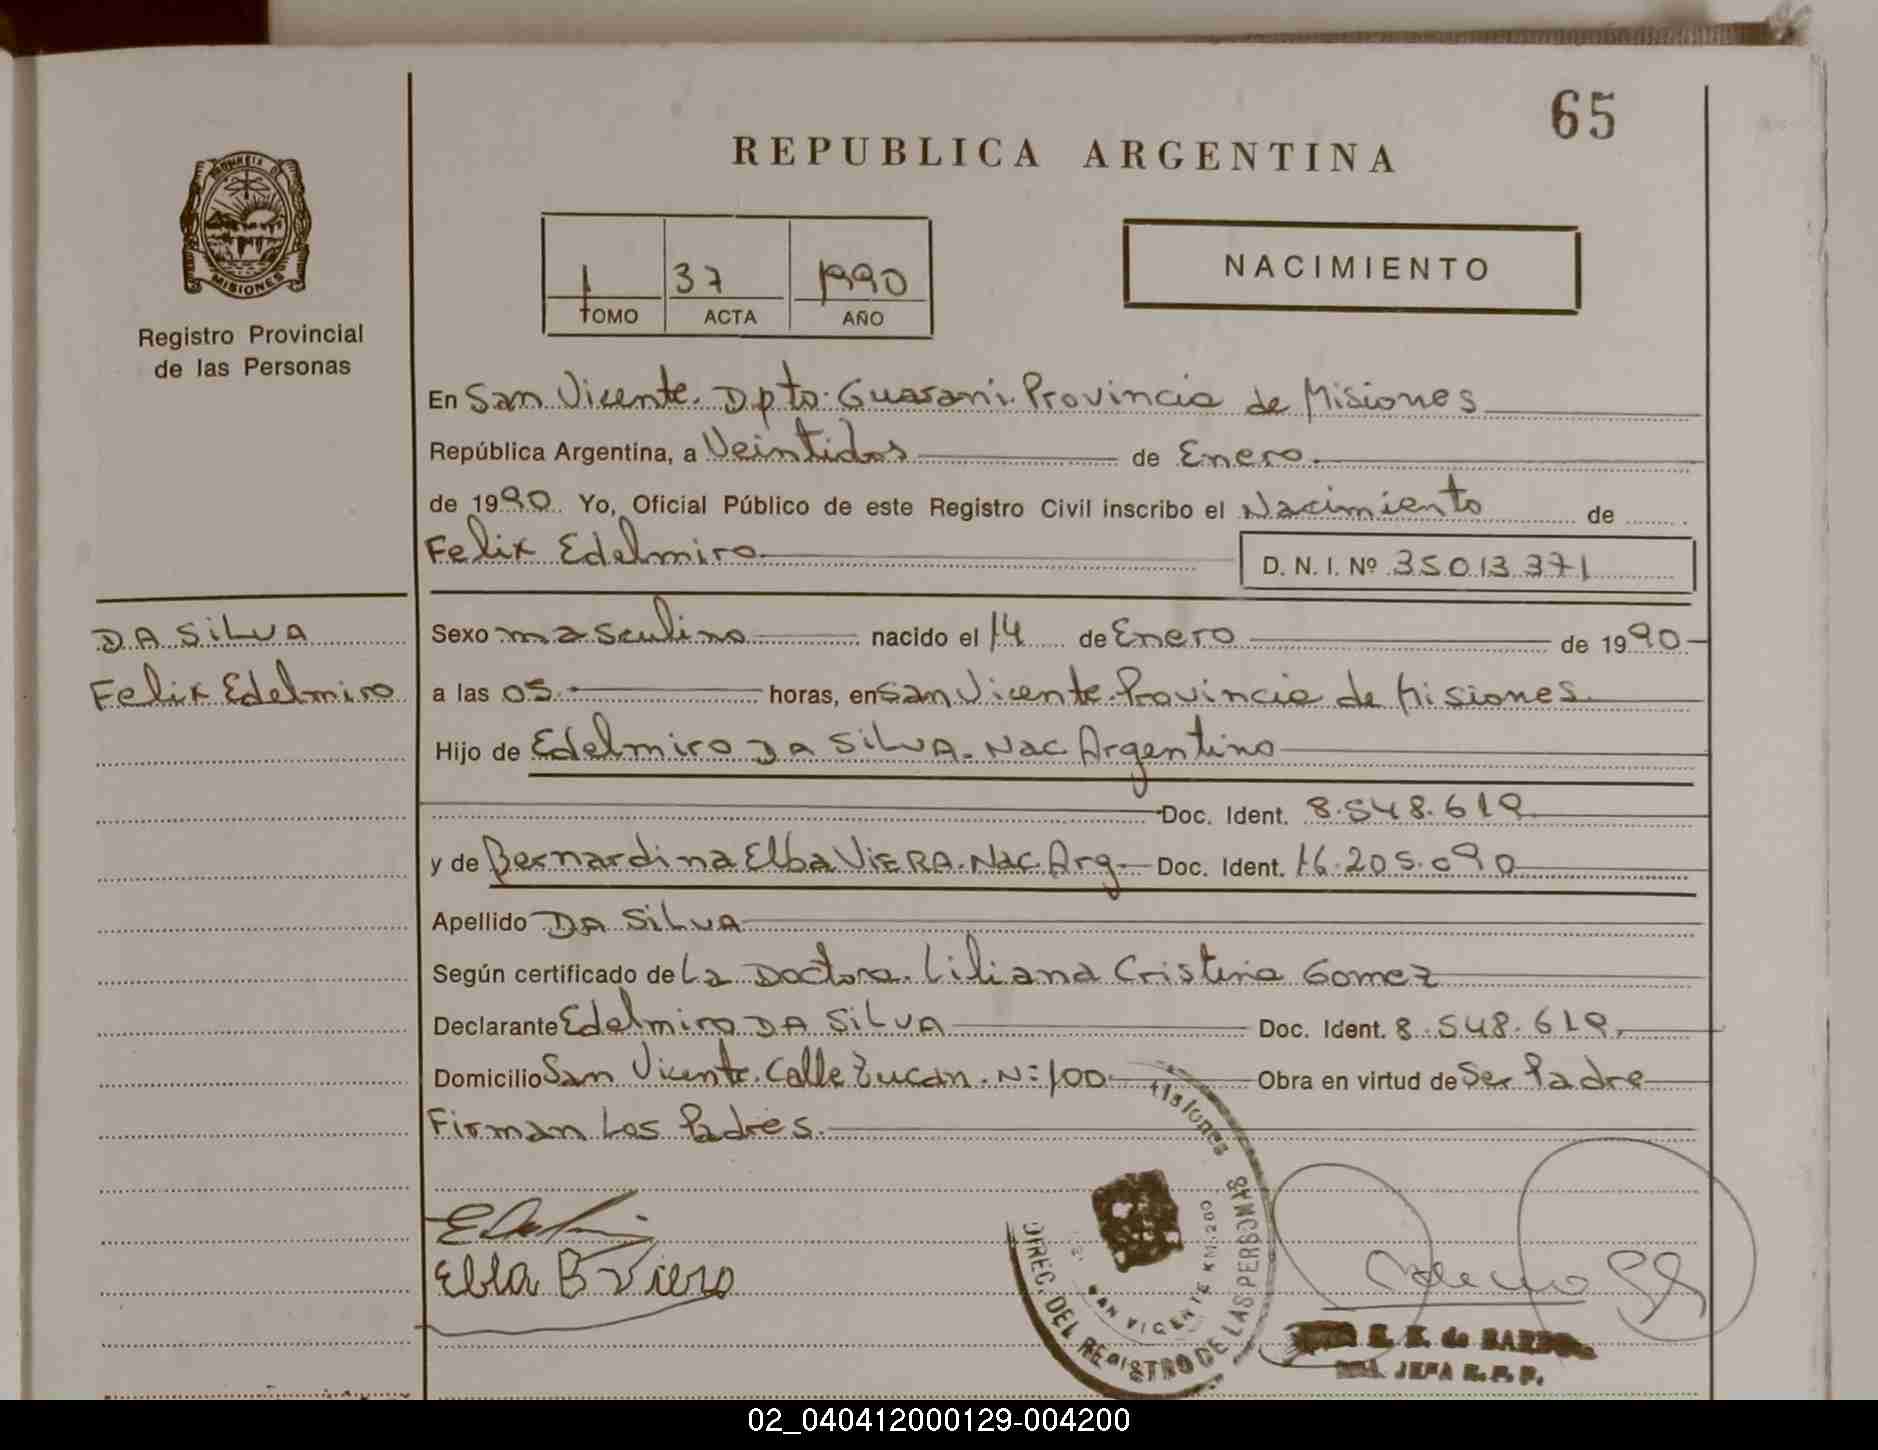 65
REPUBLICA ARGENTINA
MISIONES
Registro Provincial
de las Personas
1 37 1990
TOMO ACTA AÑO
NACIMIENTO
En San Vicente. Dpto: Guaraní. Provincia de Misiones
República Argentina, a Veintidos de Enero.
de 1990. Yo, Oficial Público de este Registro Civil inscribo el Nacimiento de
Felix Edelmiro
D. N. I. Nº 35013371
DA SiLVA
Felix Edelmiro
Sexo masculino nacido el 14 de Enero de 1990
a las 05. horas, en San Vicente. Provincia de Misiones.
Hijo de Edelmiro DA SiLVA. Nac Argentino
Doc. Ident. 8.548.619
y de Bernardina Elba ViERA. Nac. Arg. Doc. Ident. 16.205.090
Apellido DA SiLVA
Según certificado de La Doctora. Liliana Cristina Gomez
Declarante Edelmiro DA SiLVA Doc. Ident. 8.548.619.
Domicilio San Vicente. Calle Tucan. Nº 100 Obra en virtud de Ser Padre
Firman Los Padres.
Elba B Viera
Misiones
DIREC. DEL REGISTRO DE LAS PERSONAS
SAN VICENTE KM. 200
JEFA R. P. P.
02_040412000129-004200